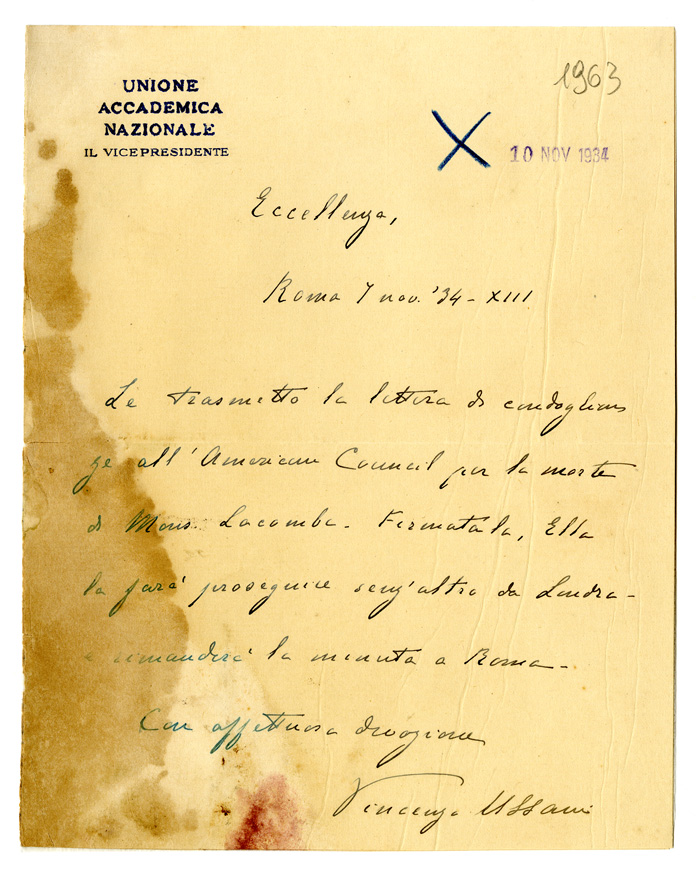 1963
UNIONE
ACCADEMICA
NAZIONALE
IL VICEPRESIDENTE
10 NOV 1934
Eccellenza,
Roma 7 nov. '34 - XIII
Le trasmetto la lettera di condoglian
ze all'American Council per la morte
di Mons. Lacombe. Firmatala, Ella
la farà proseguire senz'altro da Londra -
e rimanderà la minuta a Roma -
Con affettuosa devozione
Vincenzo Ussani